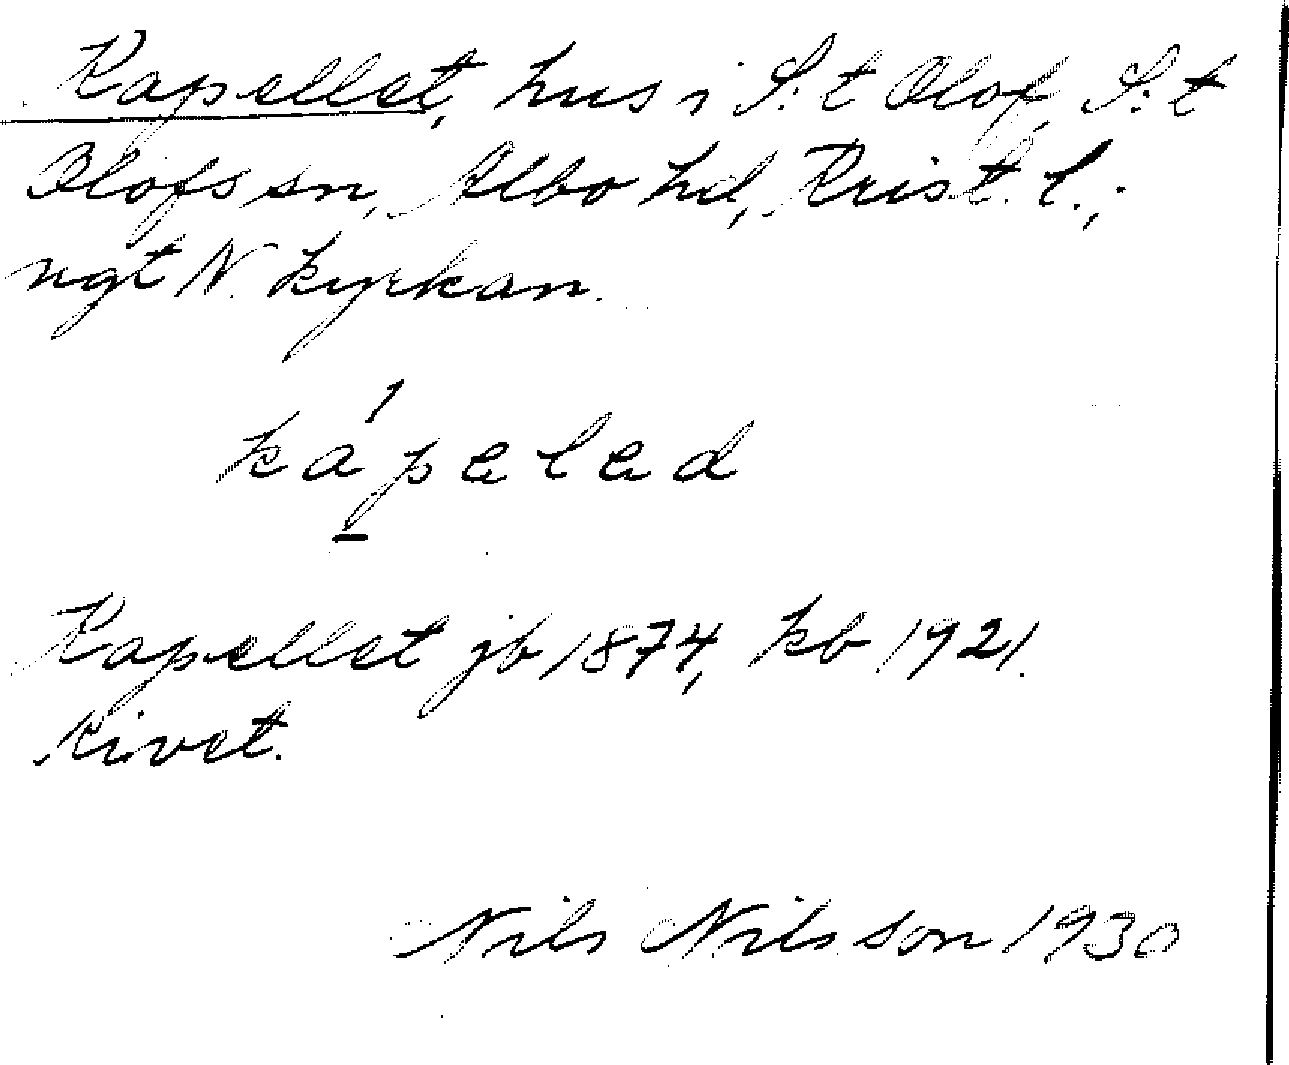 Kapellet, hus i S:t Olof, S:t
Olofs sn, Albo hd, Krist. l.;
ngt N. kyrkan.
ká̱peled
Kapellet jb 1874, kb 1921.
Rivet.
Nils Nilsson 1930